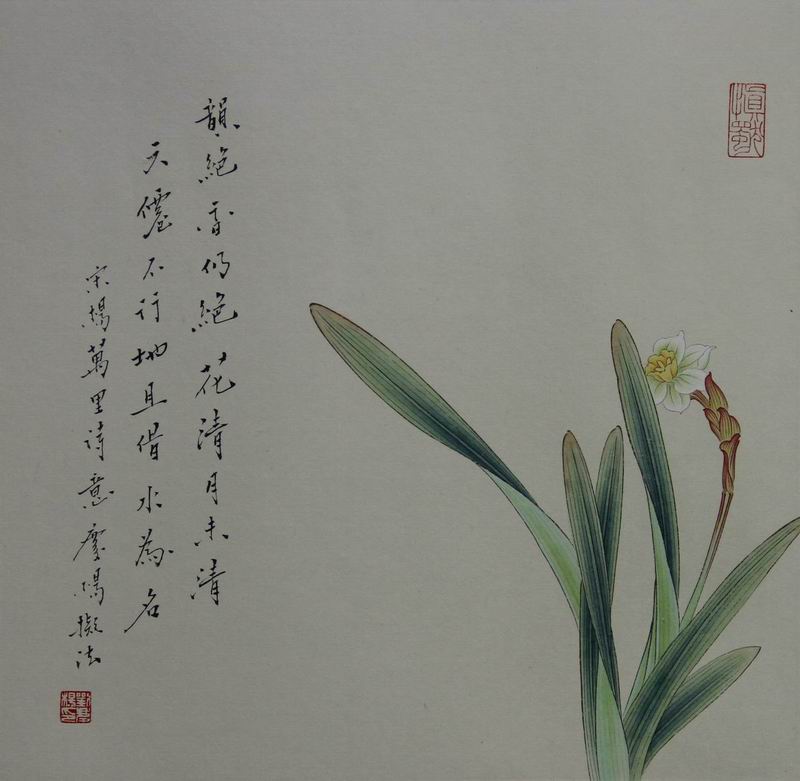 韻絶香仍絶花清月未清
天僊不行地且借水為名
宋楊萬里詩意楊擬法